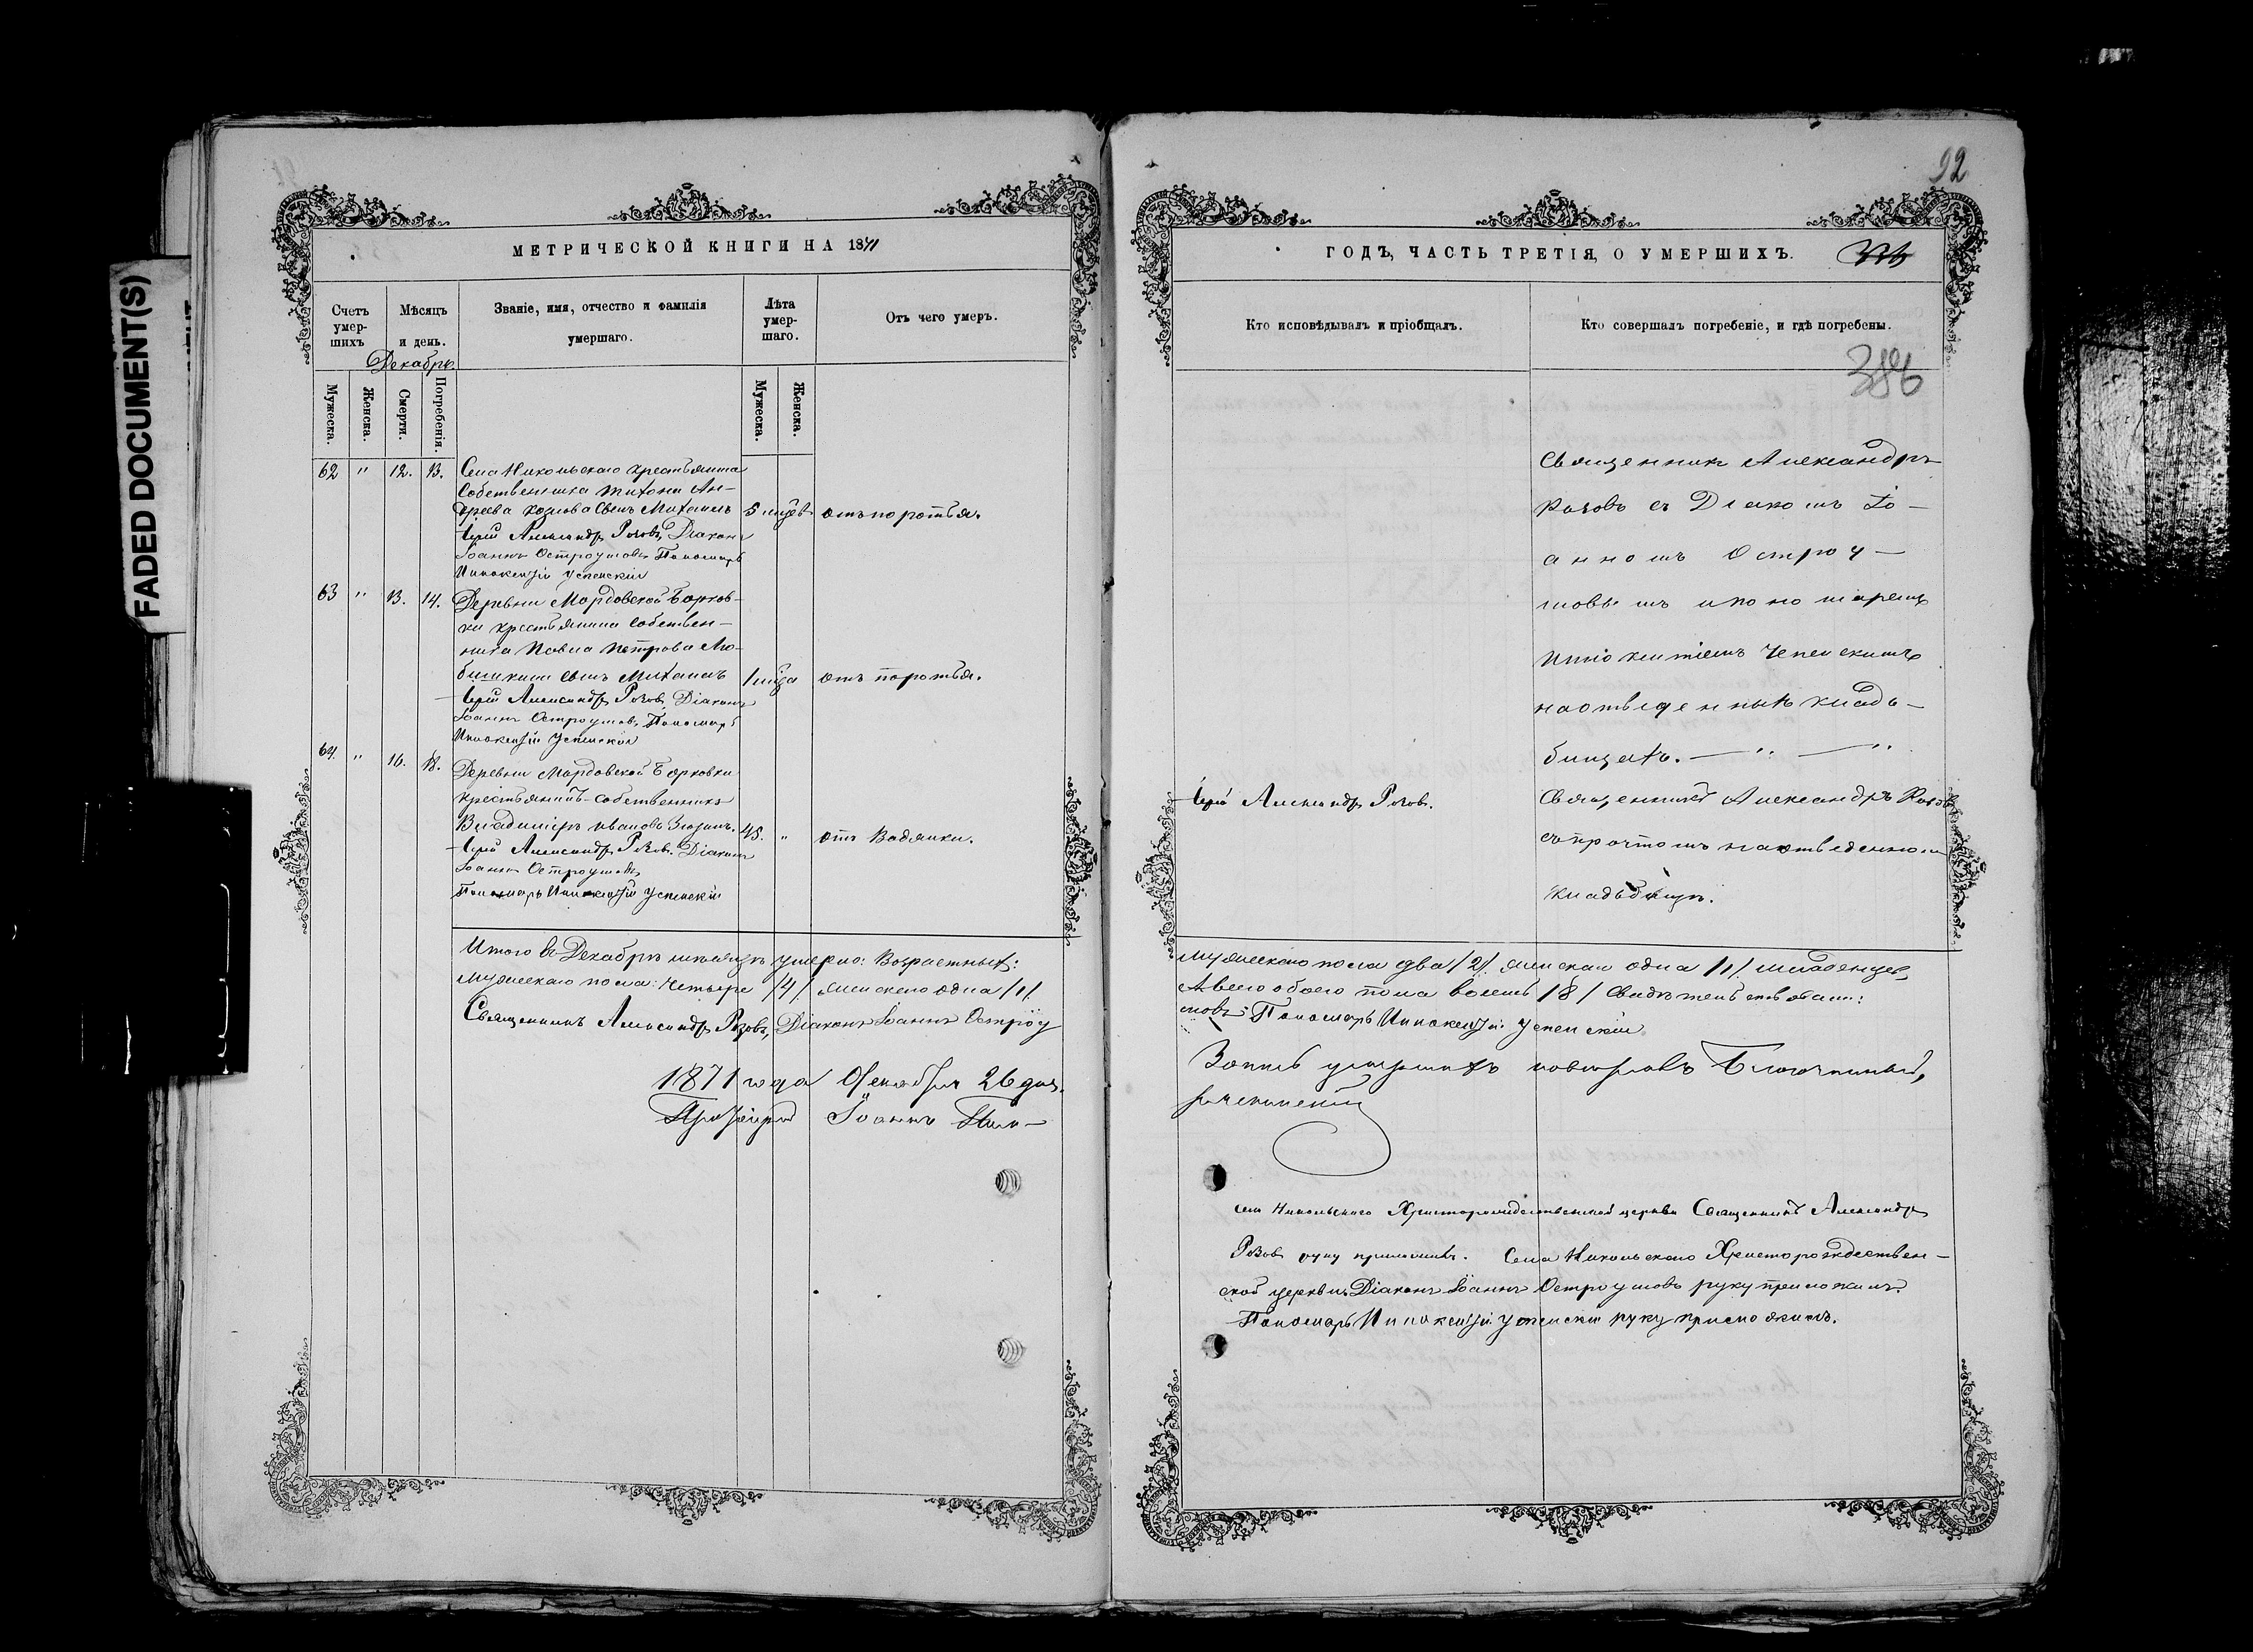 FADED DOCUMENT(S)
МЕТРИЧЕСКОЙ КНИГИ НА 1871
Счетъ умер-шихъ
Мѣсяцъ и день.
Декабрь
Званіе, имя, отчество и фамилія умершаго.
Лѣта умер-шаго.
Отъ чего умеръ.
Мужеска.
Женска.
Смерти.
Погребенія.
Мужеска.
Женска.
62 " 12. 13. Села Никольскаго крестьянина
собственника Тихона Ан-
дреева Козлова сынъ Михаилъ 5 отъ поротья.
Іерей Александръ Розовъ, Діаконъ
Іоаннъ Остроумовъ, Пономарь
Иннокентій Успенскій
63 " 13. 14. Деревни Мордовской Борков-
ки крестьянина собствен-
ника Павла Петрова Лю-
бишкина сынъ Михаилъ отъ поротья.
Іерей Александръ Розовъ, Діаконъ
Іоаннъ Остроумовъ, Пономарь
Иннокентій Успенскій
64. " 16. 18. Деревни Мордовской Борковки
крестьянинъ-собственникъ
Владиміръ Ивановъ 45. " отъ Водянки.
Іерей Александръ Розовъ. Діаконъ
Іоаннъ Остроумовъ,
Пономарь Иннокентій Успенскій
Итого въ Декабрѣ мѣсяцѣ умерло: Возрастныхъ:
мужескаго пола: четыре /4/ женскаго одна /1/.
Священникъ Александръ Розовъ, Діаконъ Іоаннъ Остроу
1871 года Декабря 26 дня.
Протоіерей Іоаннъ
92
ГОДЪ, ЧАСТЬ ТРЕТІЯ, О УМЕРШИХЪ.
Кто исповѣдывалъ и пріобщалъ.
Кто совершалъ погребеніе, и гдѣ погребены.
386
Священникъ Александръ
Розовъ съ Діакономъ Іо-
анномъ Остроу-
мовымъ и пономаремъ
Иннокентіемъ Успенскимъ
на отведенныхъ клад-
бищахъ. — " — "
Іерей Александръ Розовъ.
Священникъ Александръ Розовъ
съ причтомъ на отведенномъ
кладбищѣ.
мужескаго пола два /2/. женскаго одна /1/. младенцевъ
А всего обоего пола восемь /8/ свидѣтельствовали:
мовъ, Пономарь Иннокентій Успенскій.
Запись умершихъ повѣрялъ Благочинный,
села Никольскаго Христорождественской церкви Священникъ Александръ
Розовъ руку приложилъ. Села Никольскаго Христорождествен-
ской церкви Діаконъ Іоаннъ Остроумовъ руку приложилъ.
Пономарь Иннокентій Успенскій руку приложилъ.